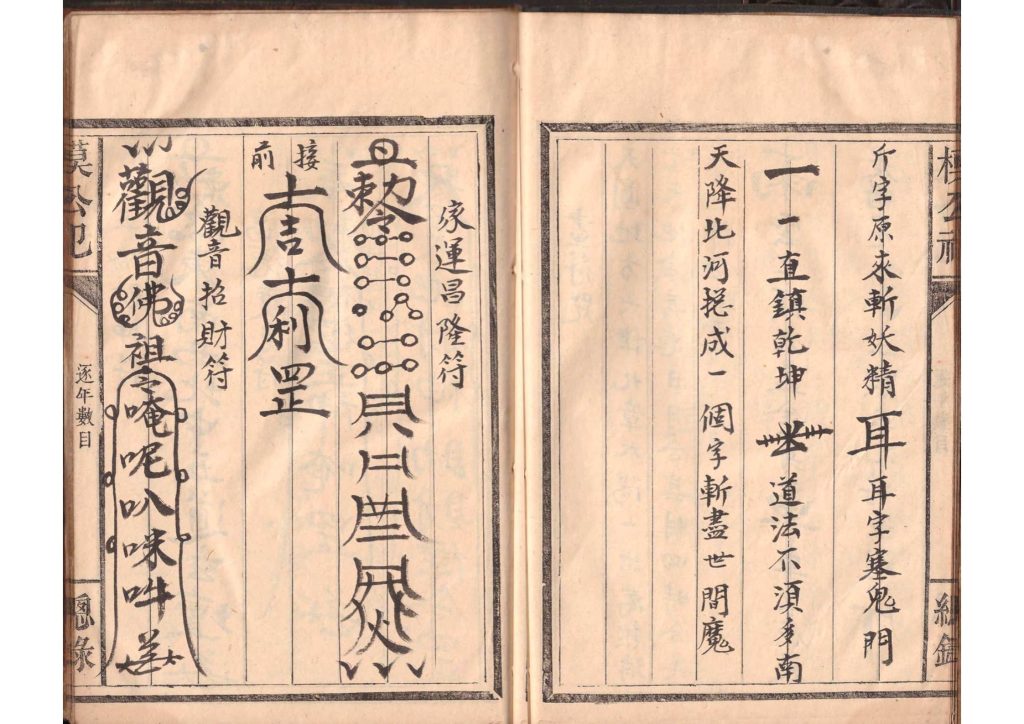 斤字原來斬妖精 耳 耳字塞鬼門
一 一直鎮乾坤 道法不須多南
天降比河搃成一個字斬盡世間魔
家運昌隆符
敕令
接前
吉利罡
觀音招財符
觀音佛祖唵呢叭咪吽
逐年數目